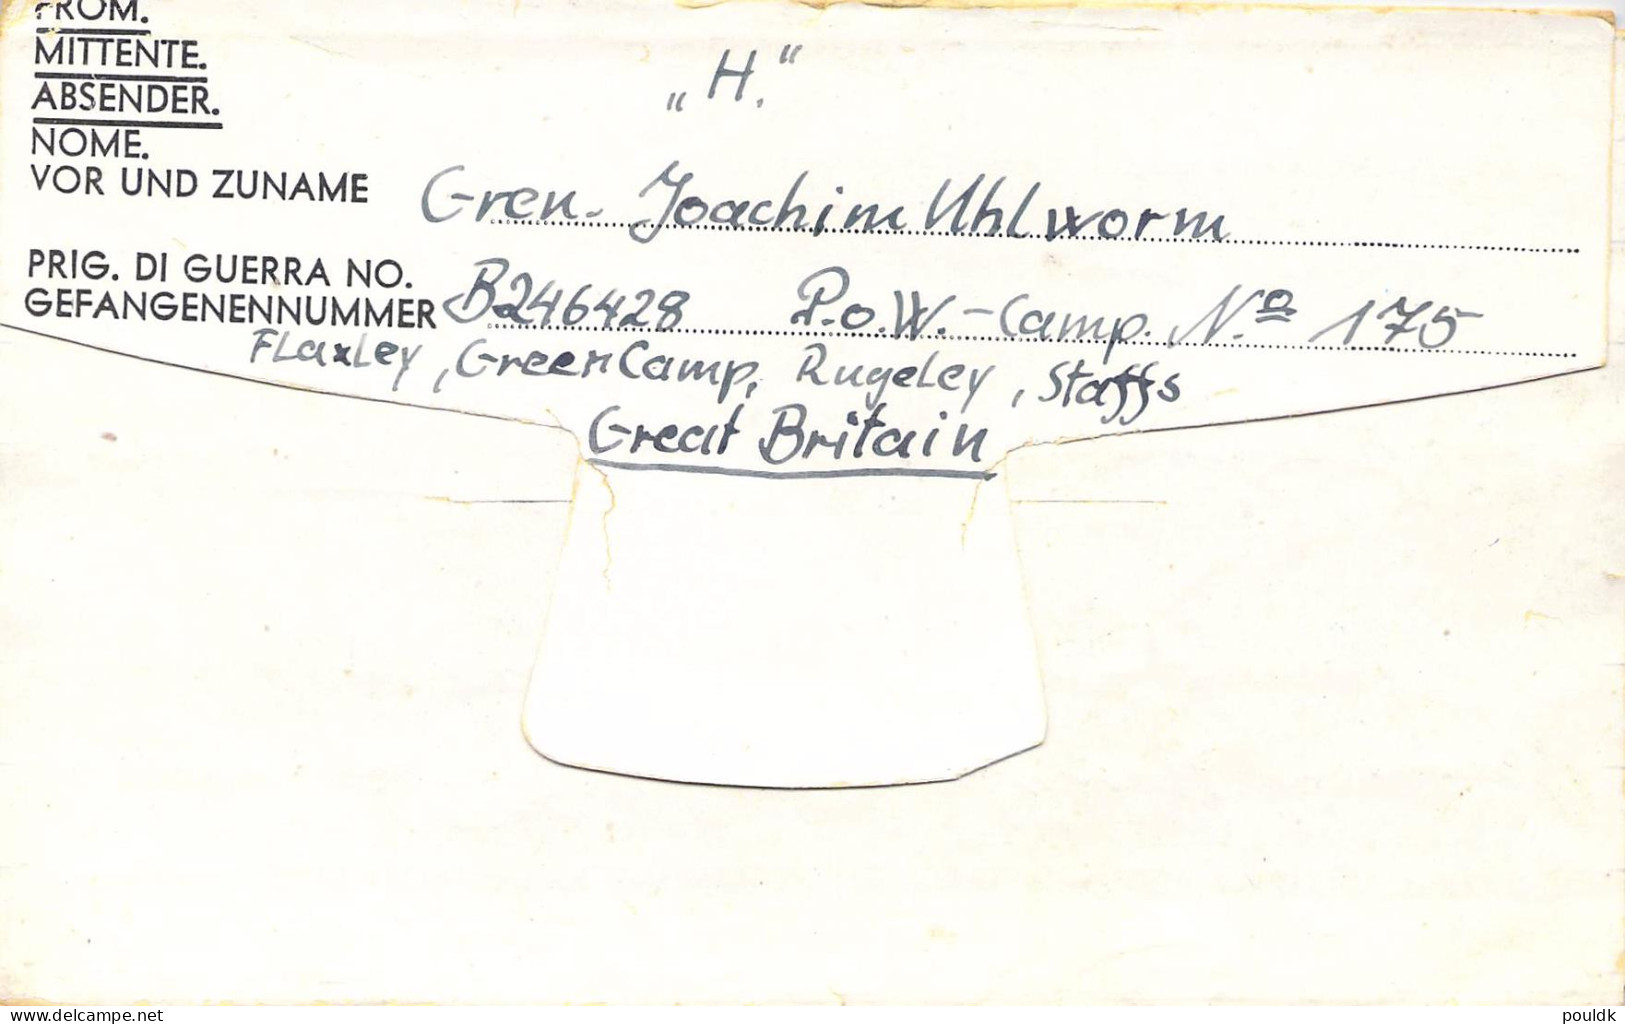 FROM.
MITTENTE.
ABSENDER.
„H."
NOME.
VOR UND ZUNAME Gren. Joachim Uhlworm
PRIG. DI GUERRA NO.
GEFANGENENNUMMER B246428 P.o.W.-Camp. No 175
Flaxley, Green Camp, Rugeley, Staffs
Great Britain
www.delcampe.net
pouldk